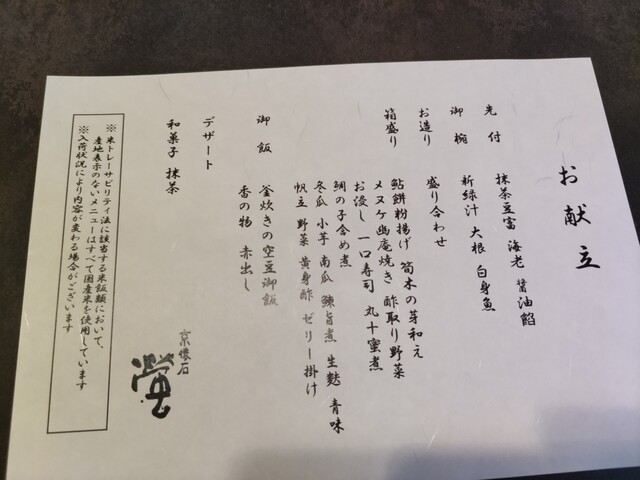 お献立
先付 抹茶豆富 海老 醤油餡
御椀 新緑汁 大根 白身魚
お造り 盛り合わせ
箱盛り 鮎餅粉揚げ 筍木の芽和え
メヌケ幽庵焼き 酢取り野菜
お浸し 一口寿司 丸十蜜煮
鯛の子含め煮
冬瓜 小芋 南瓜 鰊旨煮 生麩 青味
帆立 野菜 黄身酢 ゼリー掛け
御飯 釜炊きの空豆御飯
香の物 赤出し
デザート
和菓子 抹茶
京懐石
螢
※米トレーサビリティ法に該当する米飯類において、
産地表示のないメニューはすべて国産米を使用しています
※入荷状況により内容が変わる場合がございます